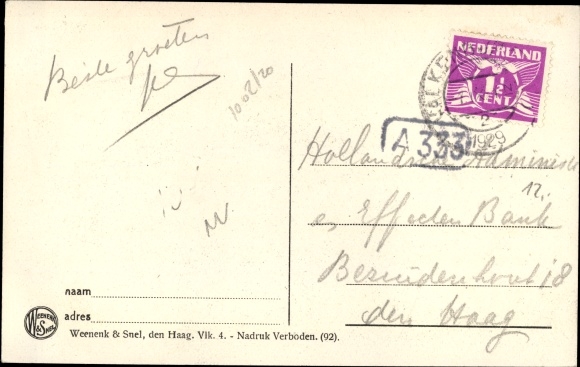 Beste groeten
1002/20
NEDERLAND
1½
CENT
VALKEN
2
1929
A 333
Hollandsche Adminis
12,
en Effecten Bank
Bezuidenhout 18
den Haag
naam
adres
WEENENK
& SNEL
Weenenk & Snel, den Haag. Vlk. 4. - Nadruk Verboden. (92).